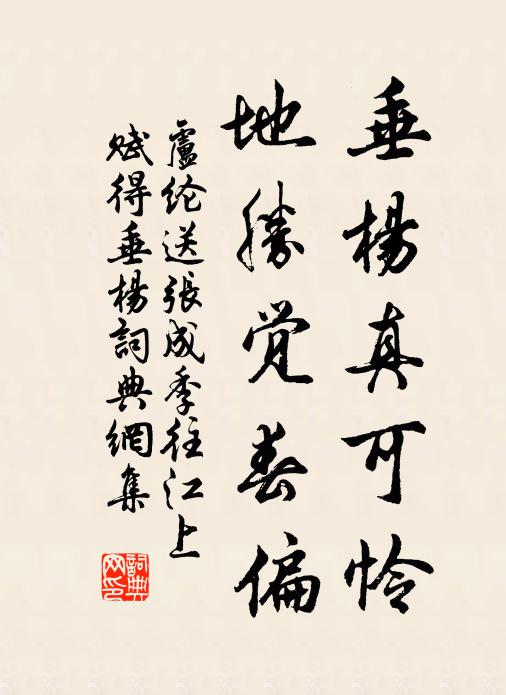 垂楊真可怜
地勝覚春偏
盧纶送張成季往江上
赋得垂楊詞典網集
詞典
网印